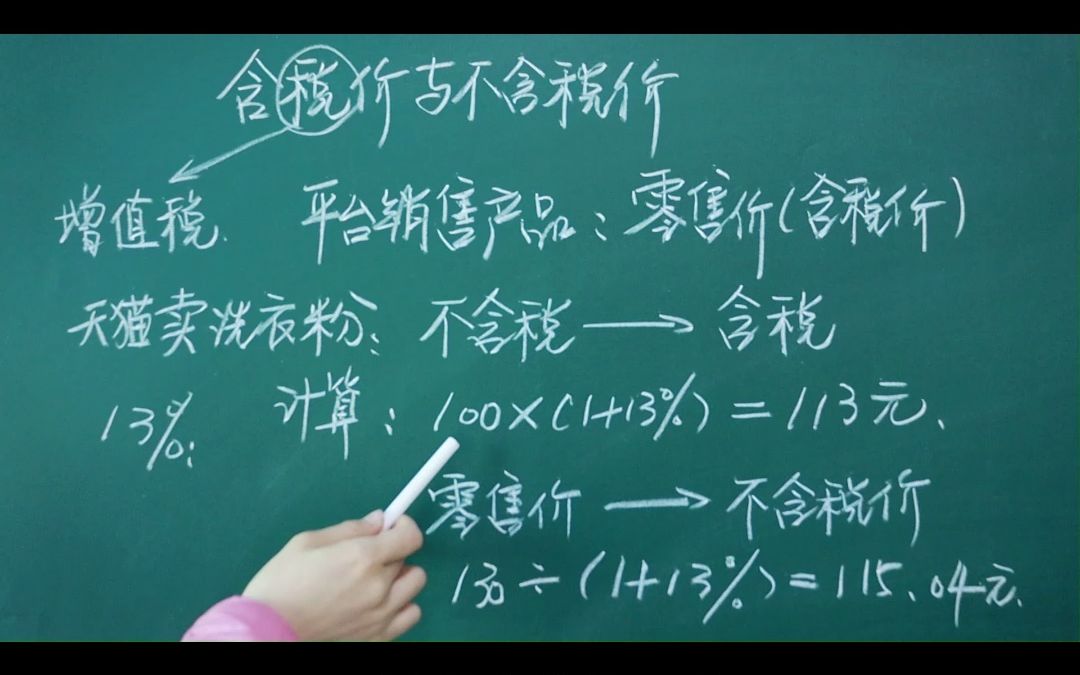 含税价与不含税价
增值税. 平台销售产品:零售价(含税价)
天猫卖洗衣粉: 不含税 → 含税
13%: 计算: 100×(1+13%)=113元.
零售价 → 不含税价
130÷(1+13%)=115.04元.